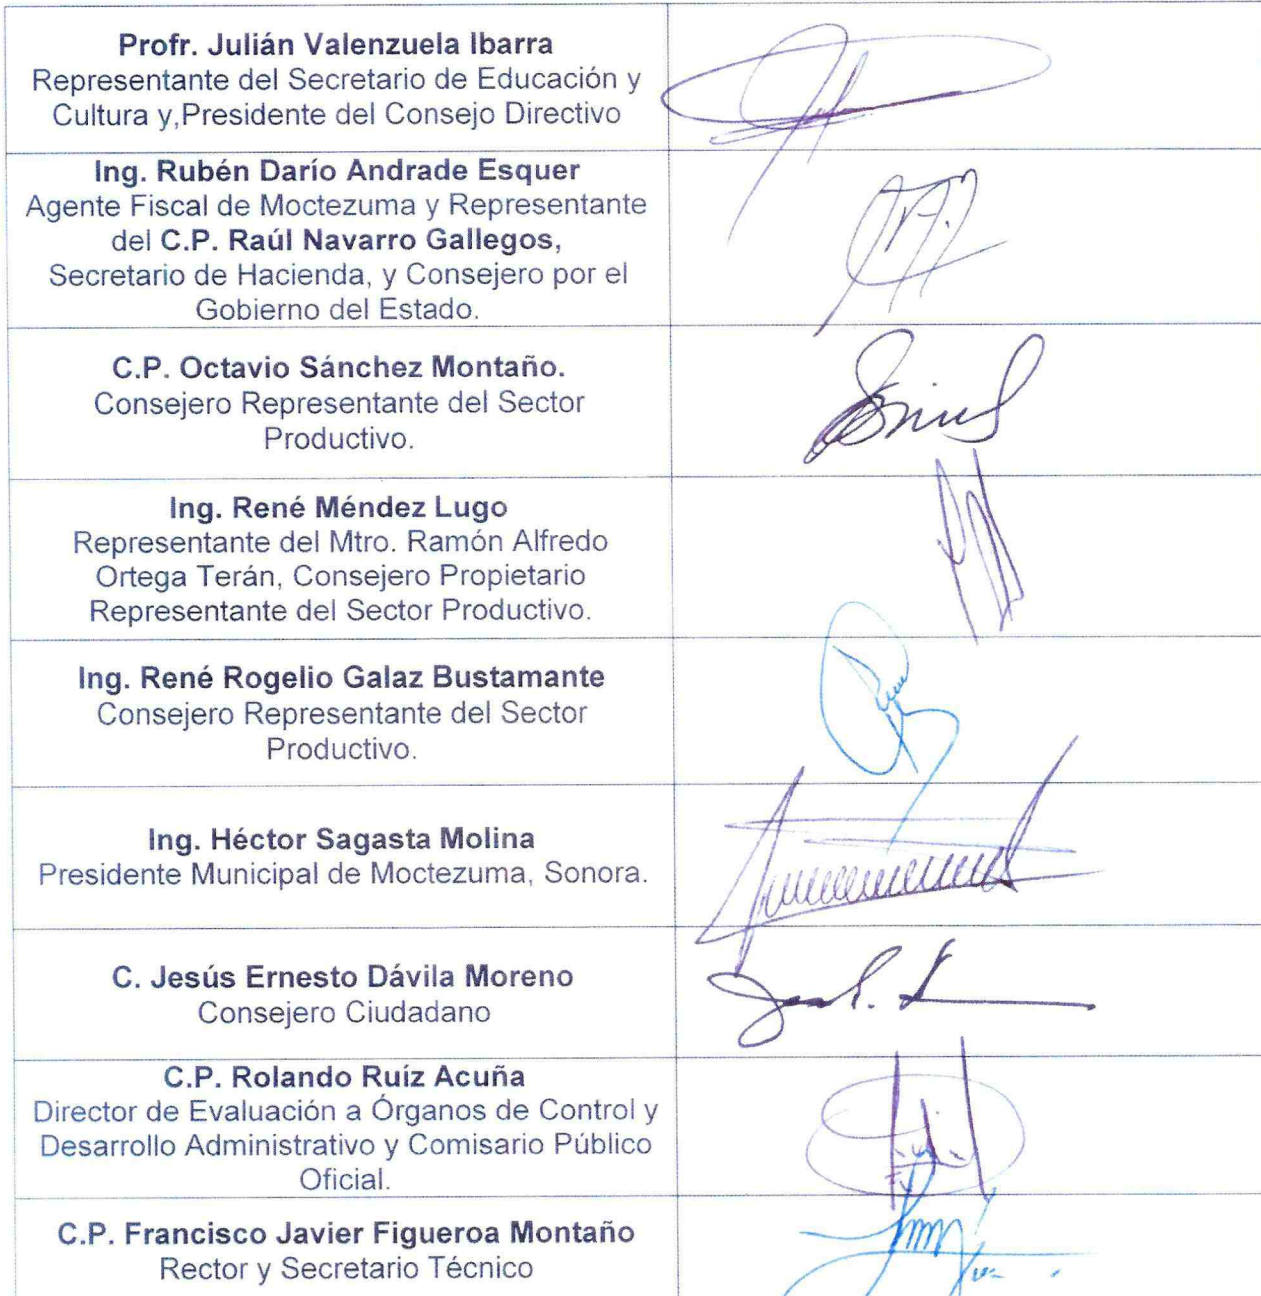 Profr. Julián Valenzuela Ibarra
Representante del Secretario de Educación y
Cultura y,Presidente del Consejo Directivo
Ing. Rubén Darío Andrade Esquer
Agente Fiscal de Moctezuma y Representante
del C.P. Raúl Navarro Gallegos,
Secretario de Hacienda, y Consejero por el
Gobierno del Estado.
C.P. Octavio Sánchez Montaño.
Consejero Representante del Sector
Productivo.
Ing. René Méndez Lugo
Representante del Mtro. Ramón Alfredo
Ortega Terán, Consejero Propietario
Representante del Sector Productivo.
Ing. René Rogelio Galaz Bustamante
Consejero Representante del Sector
Productivo.
Ing. Héctor Sagasta Molina
Presidente Municipal de Moctezuma, Sonora.
C. Jesús Ernesto Dávila Moreno
Consejero Ciudadano
C.P. Rolando Ruíz Acuña
Director de Evaluación a Órganos de Control y
Desarrollo Administrativo y Comisario Público
Oficial.
C.P. Francisco Javier Figueroa Montaño
Rector y Secretario Técnico